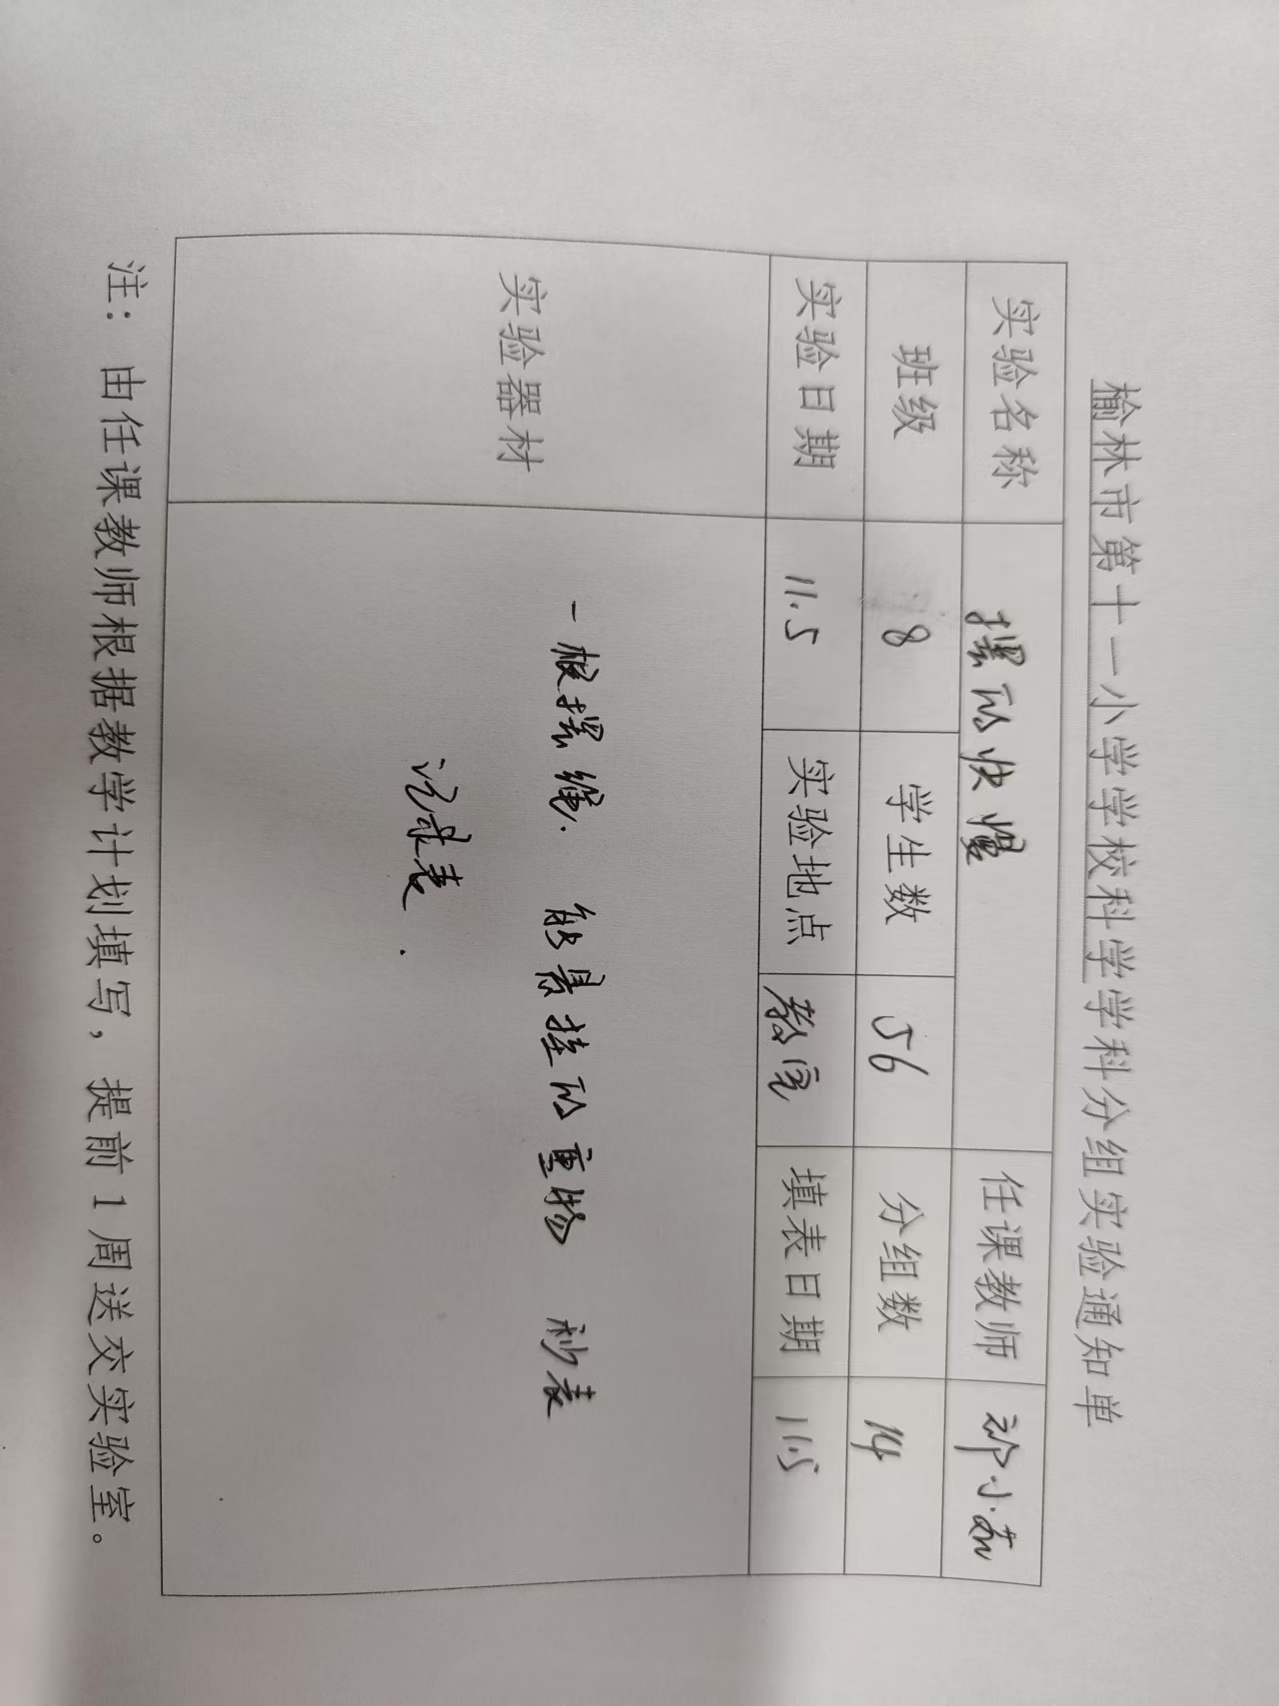 榆林市第十一小学学校科学学科分组实验通知单
实验名称 摆的快慢 任课教师 祁小茹
班级 8 学生数 56 分组数 14
实验日期 11.5 实验地点 教室 填表日期 11.5
实验器材 一根摆绳. 能悬挂的重物 秒表
记录表.
注：由任课教师根据教学计划填写，提前1周送交实验室。